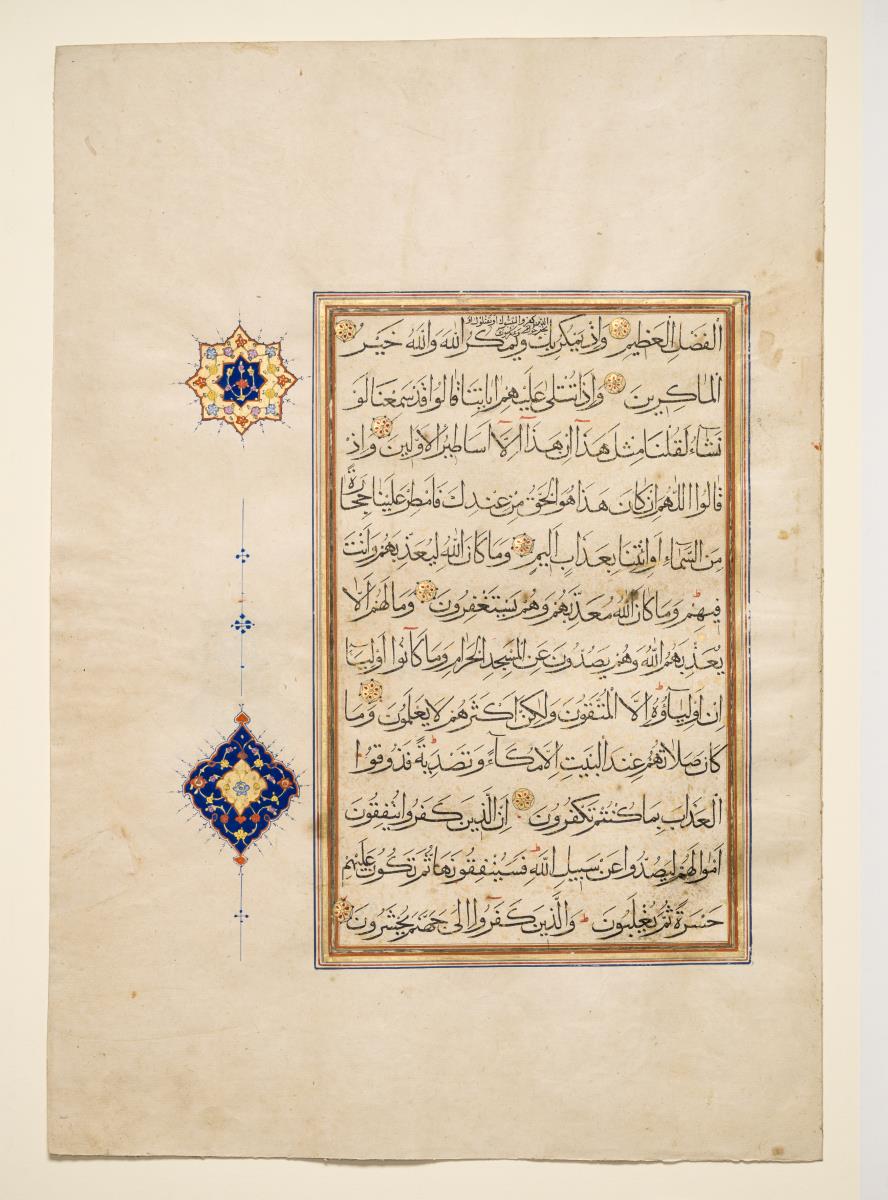 الْفَضْلِ الْعَظِيمِ وَاِذْ يَمْكُرُ بِكَ وَيَمْكُرُ اللهُ وَاللهُ خَيْرُ
الذين كفروا ليثبتوك او يقتلوك او
يخرجوك ويمكرون
الْمَاكِرِينَ وَاِذَا تُتْلَى عَلَيْهِمْ اٰيَاتُنَا قَالُوا قَدْ سَمِعْنَا لَوْ
نَشَاءُ لَقُلْنَا مِثْلَ هَذَا اِنْ هَذَا اِلَّا اَسَاطِيرُ الْاَوَّلِينَ وَاِذْ
قَالُوا اللّٰهُمَّ اِنْ كَانَ هَذَا هُوَ الْحَقَّ مِنْ عِنْدِكَ فَاَمْطِرْ عَلَيْنَا حِجَارَةً
مِنَ السَّمَاءِ اَوِ ائْتِنَا بِعَذَابٍ اَلِيمٍ وَمَا كَانَ اللهُ لِيُعَذِّبَهُمْ وَاَنْتَ
فِيهِمْ وَمَا كَانَ اللهُ مُعَذِّبَهُمْ وَهُمْ يَسْتَغْفِرُونَ وَمَا لَهُمْ اَلَّا
يُعَذِّبَهُمُ اللهُ وَهُمْ يَصُدُّونَ عَنِ الْمَسْجِدِ الْحَرَامِ وَمَا كَانُوا اَوْلِيَاءَهُ
اِنْ اَوْلِيَاؤُهُ اِلَّا الْمُتَّقُونَ وَلَكِنَّ اَكْثَرَهُمْ لَا يَعْلَمُونَ وَمَا
كَانَ صَلَاتُهُمْ عِنْدَ الْبَيْتِ اِلَّا مُكَاءً وَتَصْدِيَةً فَذُوقُوا
الْعَذَابَ بِمَا كُنْتُمْ تَكْفُرُونَ اِنَّ الَّذِينَ كَفَرُوا يُنْفِقُونَ
اَمْوَالَهُمْ لِيَصُدُّوا عَنْ سَبِيلِ اللهِ فَسَيُنْفِقُونَهَا ثُمَّ تَكُونُ عَلَيْهِمْ
حَسْرَةً ثُمَّ يُغْلَبُونَ وَالَّذِينَ كَفَرُوا اِلَى جَهَنَّمَ يُحْشَرُونَ